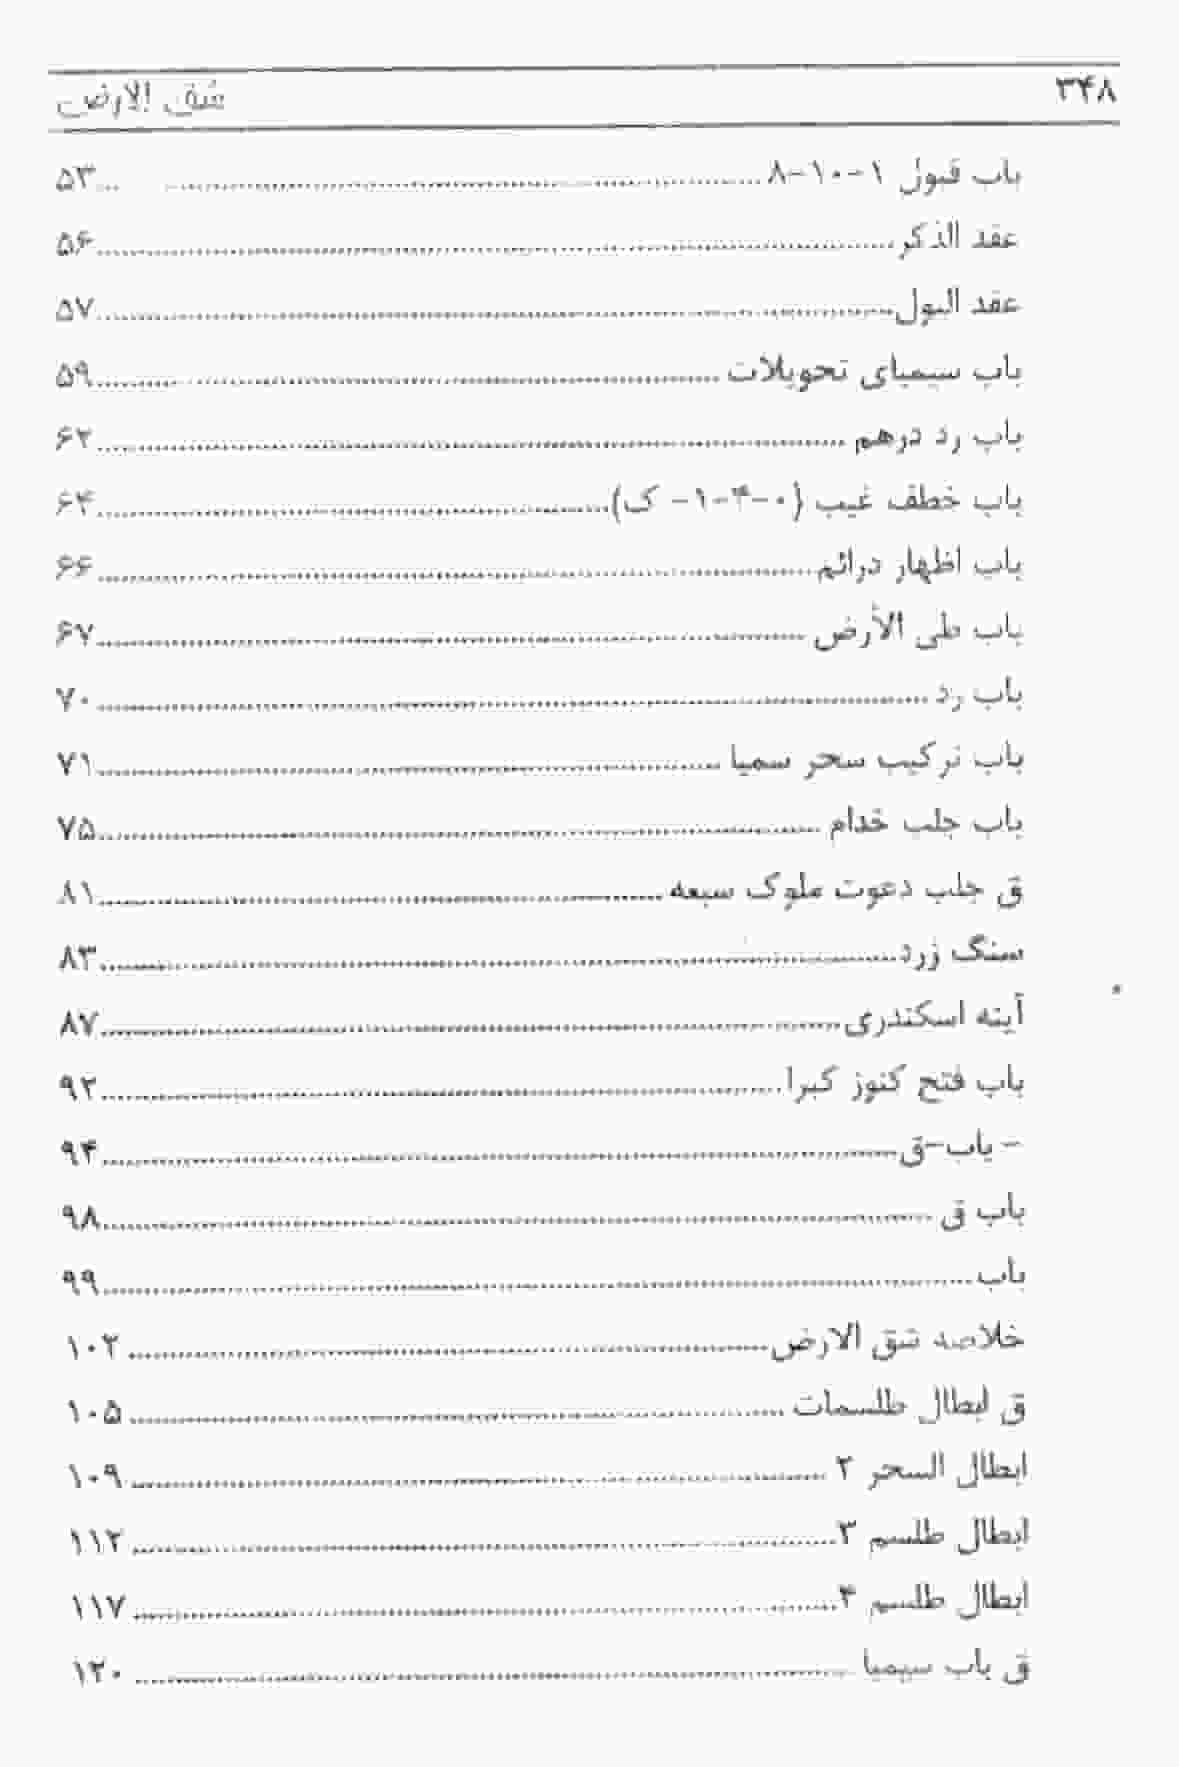 ۳۴۸ شق الارض
باب قبول ۱-۱۰-۸ ۵۳
عقد الذکر ۵۶
عقد البول ۵۷
باب سیمیای تحویلات ۵۹
باب رد درهم ۶۲
باب خطف غیب (۰-۴-۱- ک) ۶۴
باب اظهار درائم ۶۶
باب طی الأرض ۶۷
باب رد ۷۰
باب ترکیب سحر سمیا ۷۱
باب جلب خدام ۷۵
ق جلب دعوت ملوک سبعه ۸۱
سنگ زرد ۸۳
آینه اسکندری ۸۷
باب فتح کنوز کبرا ۹۲
- باب-ق ۹۴
باب ق ۹۸
باب ۹۹
خلاصه شق الارض ۱۰۲
ق ابطال طلسمات ۱۰۵
ابطال السحر ۲ ۱۰۹
ابطال طلسم ۳ ۱۱۲
ابطال طلسم ۴ ۱۱۷
ق باب سیمیا ۱۲۰